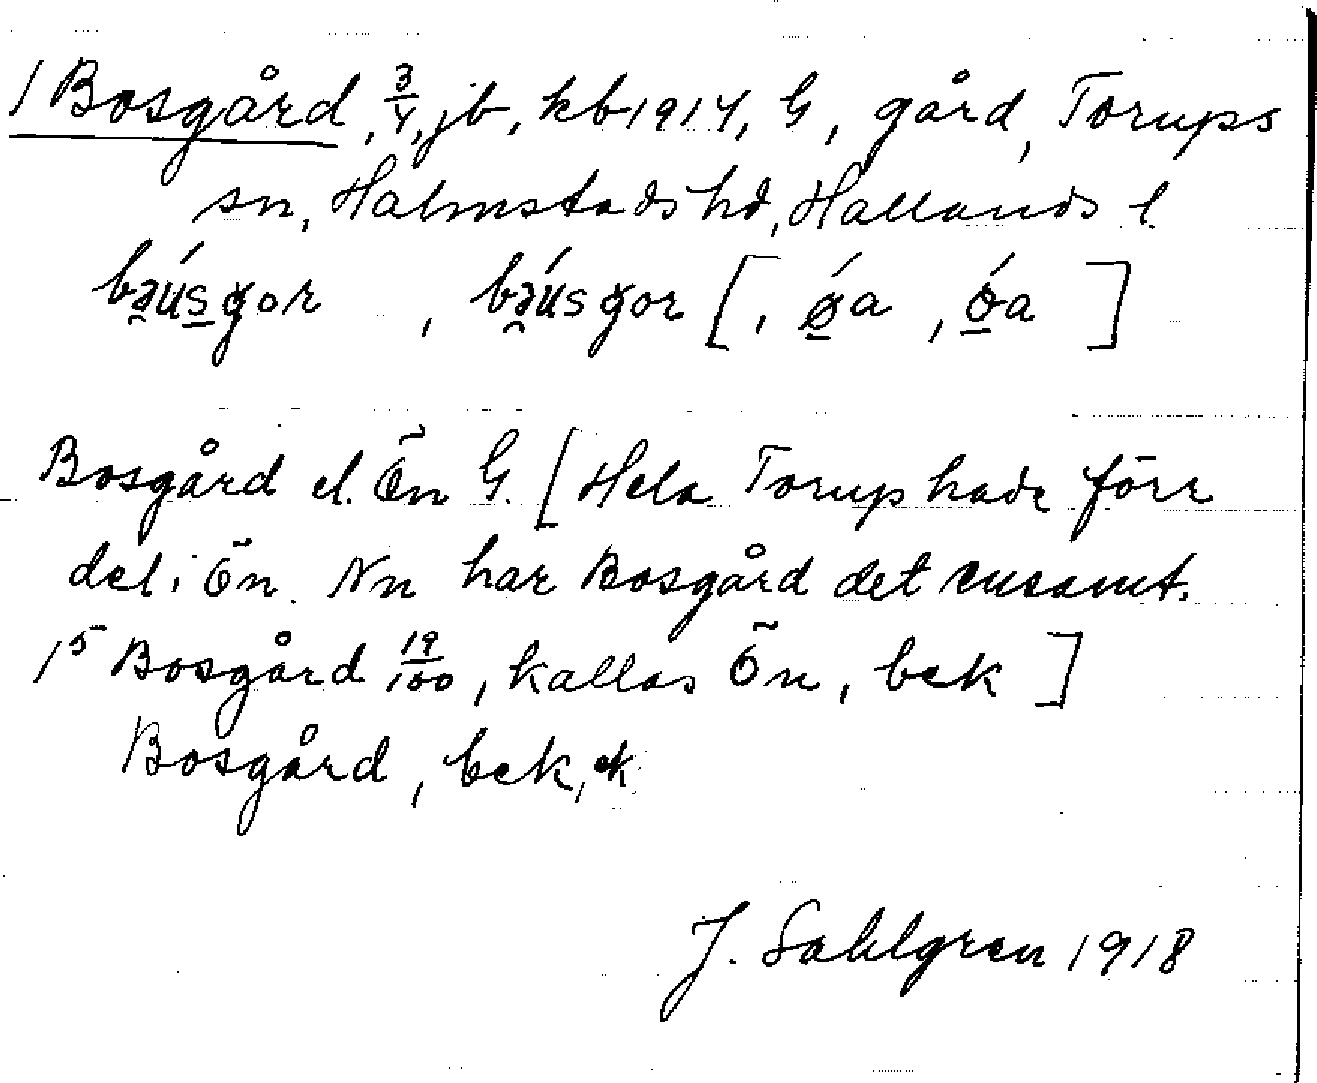 1 Bosgård, 3/4, jb, kb 1914, G, gård, Torups
sn, Halmstads hd, Hallands l.
bə̯úsgor , bə̯úsgor [, ǿa , óa ]
Bosgård el. Ön G. [Hela Torup hade förr
del i Ön. Nu har Bosgård det ensamt.
1⁵ Bosgård 19/100, kallas Ön, bek ]
Bosgård, bek, ek
J. Sahlgren 1918